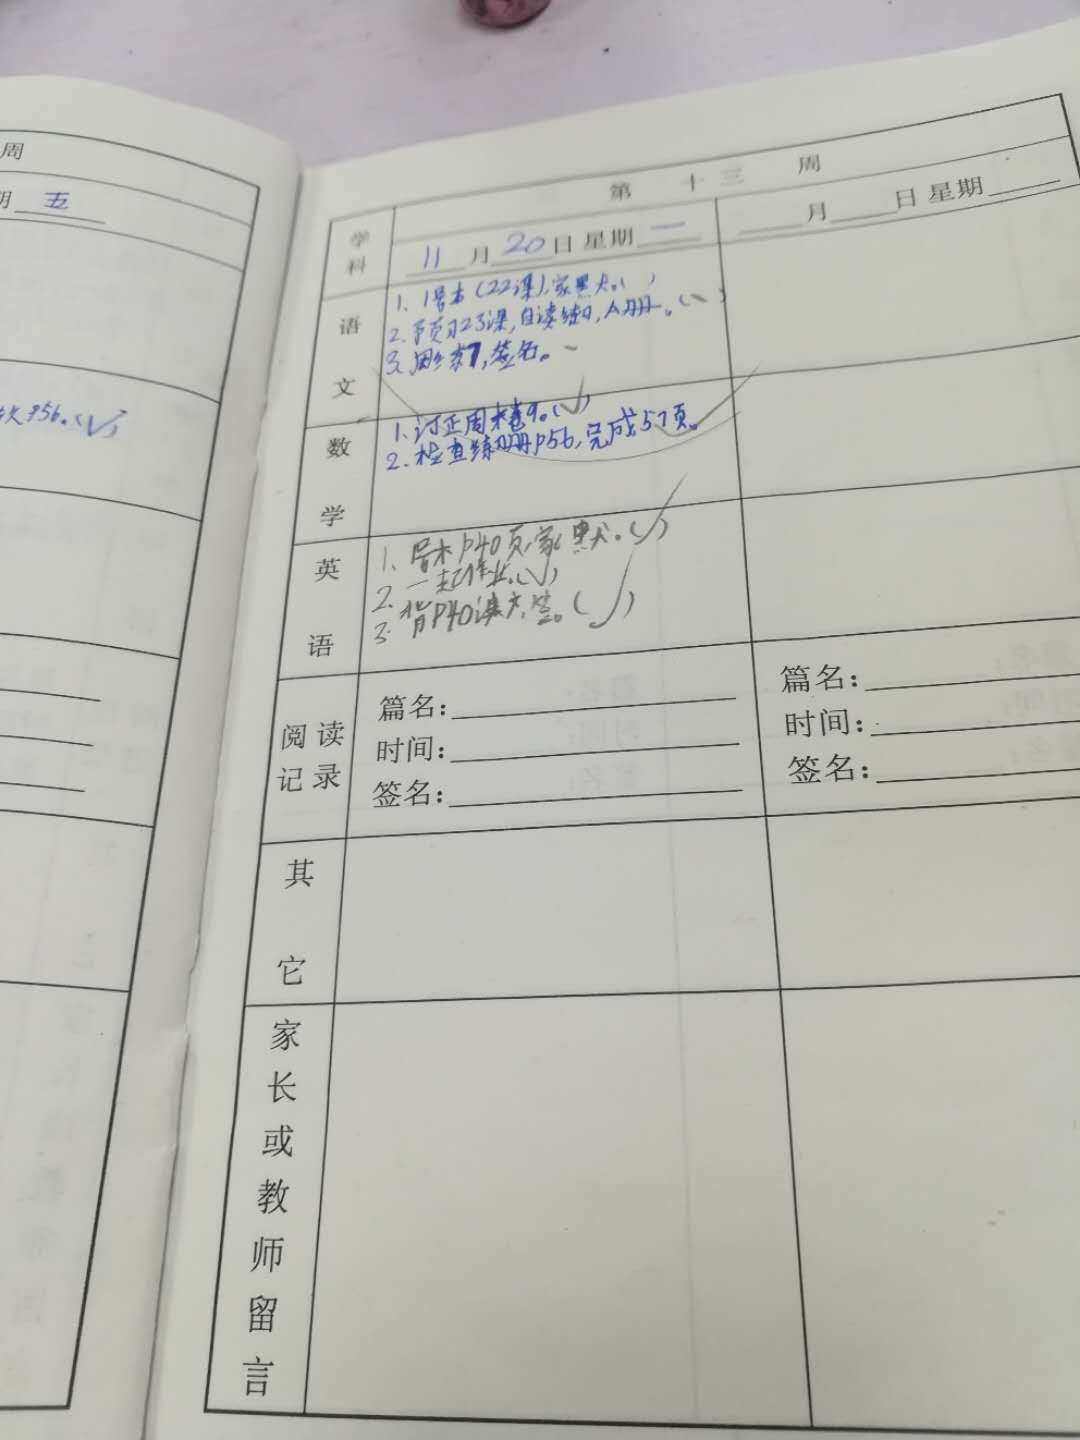 周
期 五
P56。(✓)
第 十三 周
学科
11月20日 星期一
月 日 星期
语文
1、1号本(22课),家默。( )
2、预习23课,自读结9,A册。(、)
3、周练7,签名。
数学
1、订正周末卷9。(✓)
2、检查练习册P56,完成57页。
英语
1、号本P40页,家默。(✓)
2、一起作业。(✓)
3、背P40课文,签。(✓)
阅读记录
篇名:
时间:
签名:
篇名:
时间:
签名:
其它
家长或教师留言